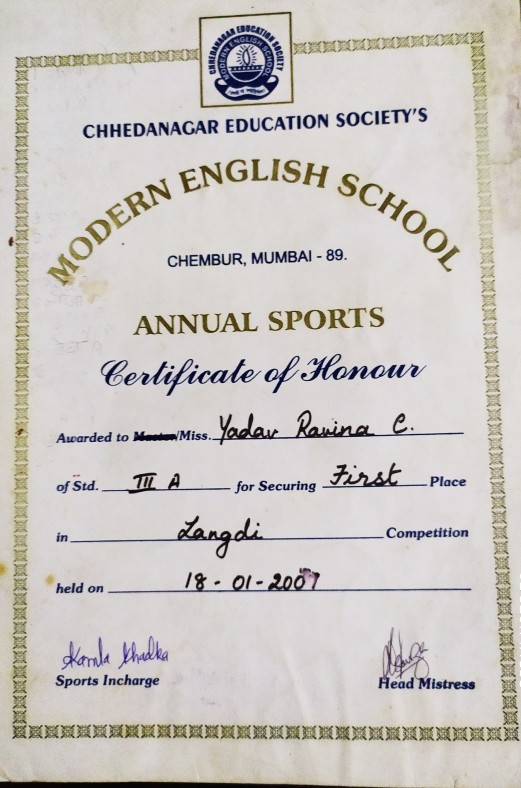 CHHEDANAGAR EDUCATION SOCIETY
MODERN ENGLISH SCHOOL
CHHEDANAGAR EDUCATION SOCIETY'S
MODERN ENGLISH SCHOOL
CHEMBUR, MUMBAI - 89.
ANNUAL SPORTS
Certificate of Honour
Awarded to Master/Miss. Yadav Ravina C.
of Std. III A for Securing First Place
in Langdi Competition
held on 18-01-2007
Kamla Khadka
Sports Incharge
Head Mistress